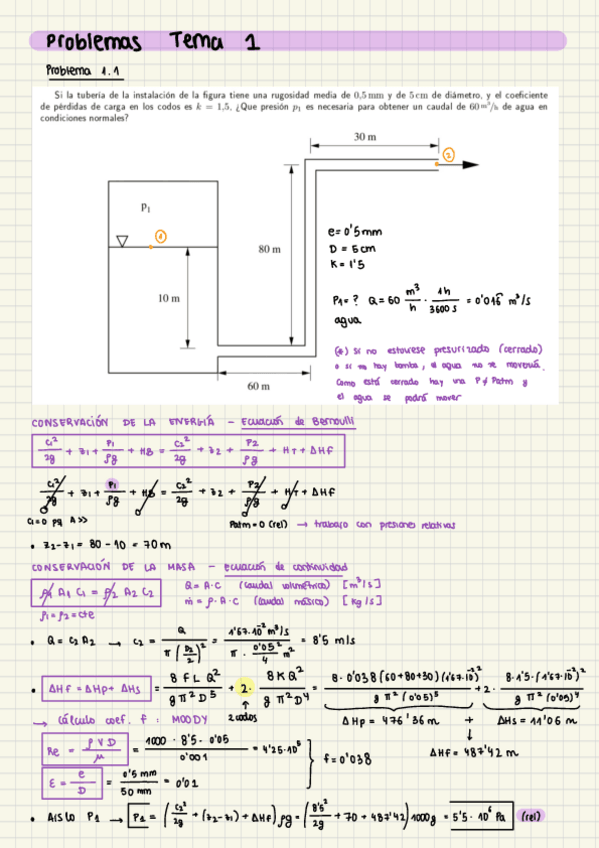 Problemas Tema 1
Problema 1.1
Si la tubería de la instalación de la figura tiene una rugosidad media de 0,5 mm y de 5 cm de diámetro, y el coeficiente
de pérdidas de carga en los codos es k = 1,5, ¿Que presión p₁ es necesaria para obtener un caudal de 60 m³/h de agua en
condiciones normales?
30 m
2
p₁
1
80 m
10 m
60 m
e=0'5mm
D = 5cm
K = 1'5
P1 = ? Q = 60 m³/h · 1h/3600 s = 0'016 m³/s
agua
(*) si no estuviese presurizado (cerrado)
o si no hay bomba, el agua no se movería.
Como está cerrado hay una P ≠ Patm y
el agua se podrá mover
CONSERVACIÓN DE LA ENERGÍA - Ecuación de Bernoulli
C1²/2g + z1 + P1/ρg + HB = C2²/2g + z2 + P2/ρg + HT + ΔHF
C1²/2g + z1 + P1/ρg + HB = C2²/2g + z2 + P2/ρg + HT + ΔHF
C1=0 pq A>>
Patm = 0 (rel) → trabajo con presiones relativas
• z2-z1 = 80 - 10 = 70m
CONSERVACIÓN DE LA MASA - ecuación de continuidad
ρ1 A1 C1 = ρ2 A2 C2
Q = A·C (caudal volumétrico) [m³/s]
ṁ = ρ·A·C (caudal másico) [kg/s]
ρ1 = ρ2 = cte
• Q = C2 A2 → C2 = Q / π (D2/2)² = 1'67·10⁻² m³/s / π · 0'05²/4 m² = 8'5 m/s
• ΔHf = ΔHp + ΔHs = 8 f L Q² / g π² D⁵ + 2· 8 K Q² / g π² D⁴ = 8·0'038 (60+80+30) (1'67·10⁻²)² / g π² (0'05)⁵ + 2· 8·1'5·(1'67·10⁻²)² / g π² (0'05)⁴
2 codos
ΔHp = 476'36 m + ΔHs = 11'06 m
→ Cálculo coef. f : MOODY
ΔHf = 487'42 m
Re = ρ V D / μ = 1000 · 8'5 · 0'05 / 0'001 = 4'25·10⁵
f = 0'038
ε = e/D = 0'5 mm / 50 mm = 0'01
• Aíslo P1 → P1 = (C2²/2g + (z2-z1) + ΔHf) ρg = (8'5²/2g + 70 + 487'42) 1000g = 5'5·10⁶ Pa (rel)